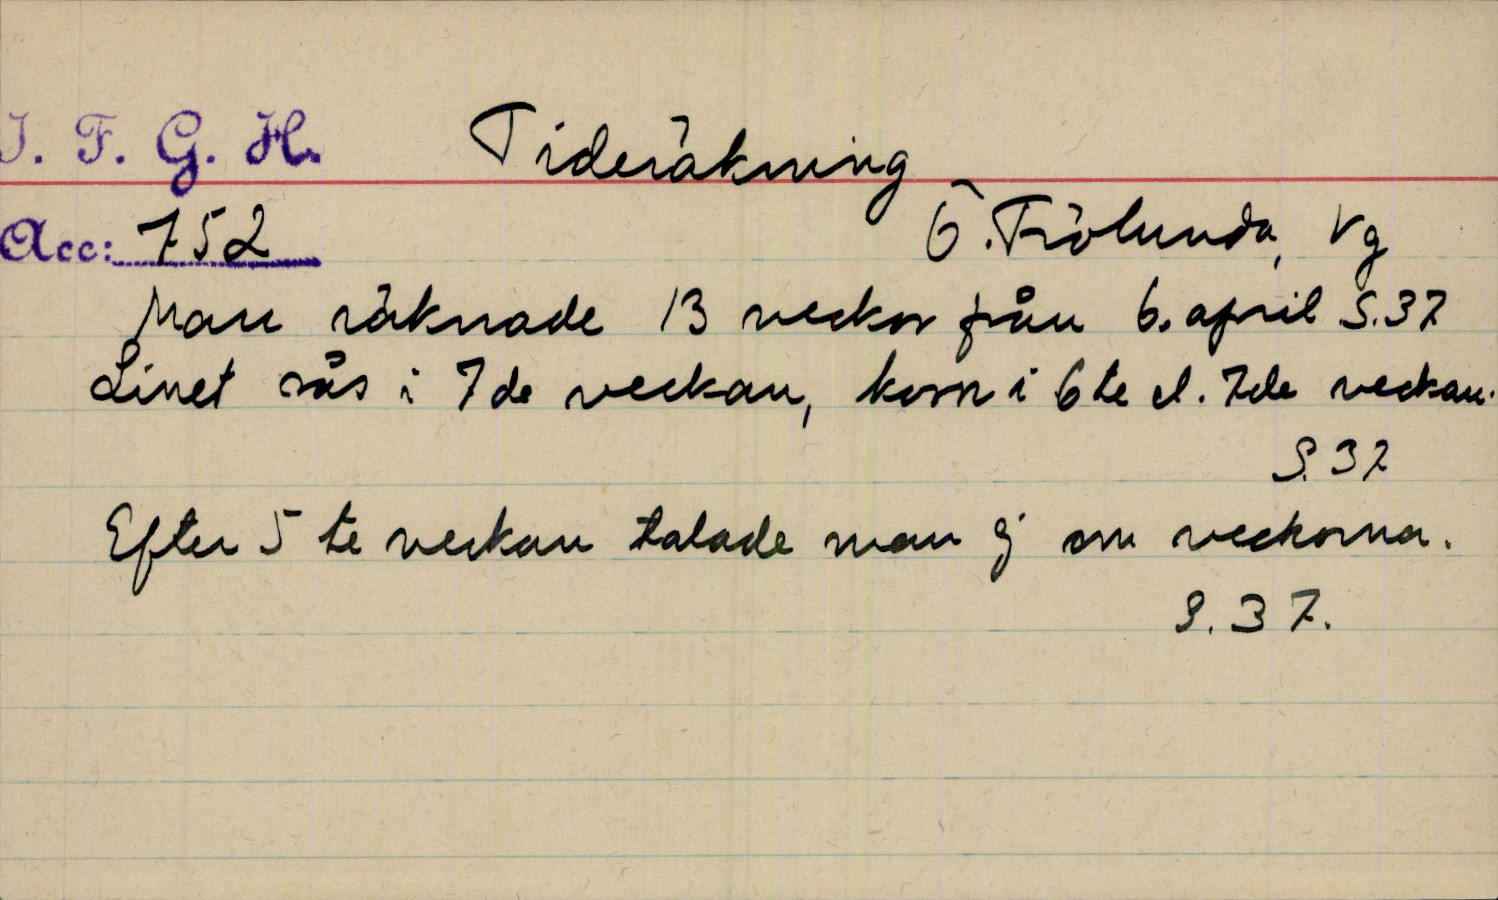 I. F. G. H. Tideräkning
Acc: 752 Ö. Frölunda, Vg
Man räknade 13 veckor från 6. april S. 37
Linet sås i 7de veckan, korn i 6te el. 7de veckan.
S. 37
Efter 5te veckan talade man ej om veckorna.
S. 37.